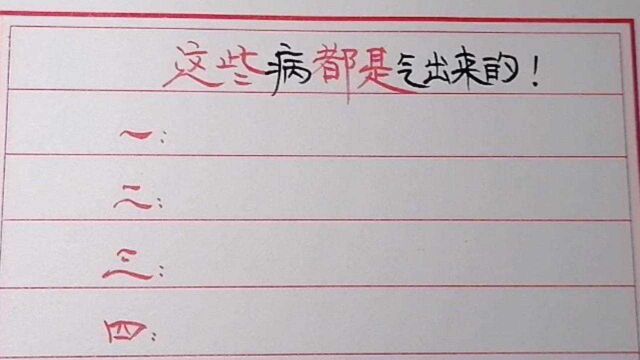 这些病都是气出来的！
一：
二：
三：
四：